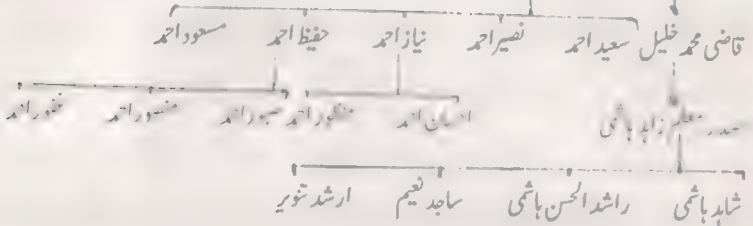 قاضی محمد خلیل سعید احمد نصیر احمد نیاز احمد حفیظ احمد مسعود احمد
احسان احمد منظور احمد صبور احمد منصور احمد غفور احمد
زاہد ہاشمی
شاہد ہاشمی راشد الحسن ہاشمی ساجد نعیم ارشد تنویر